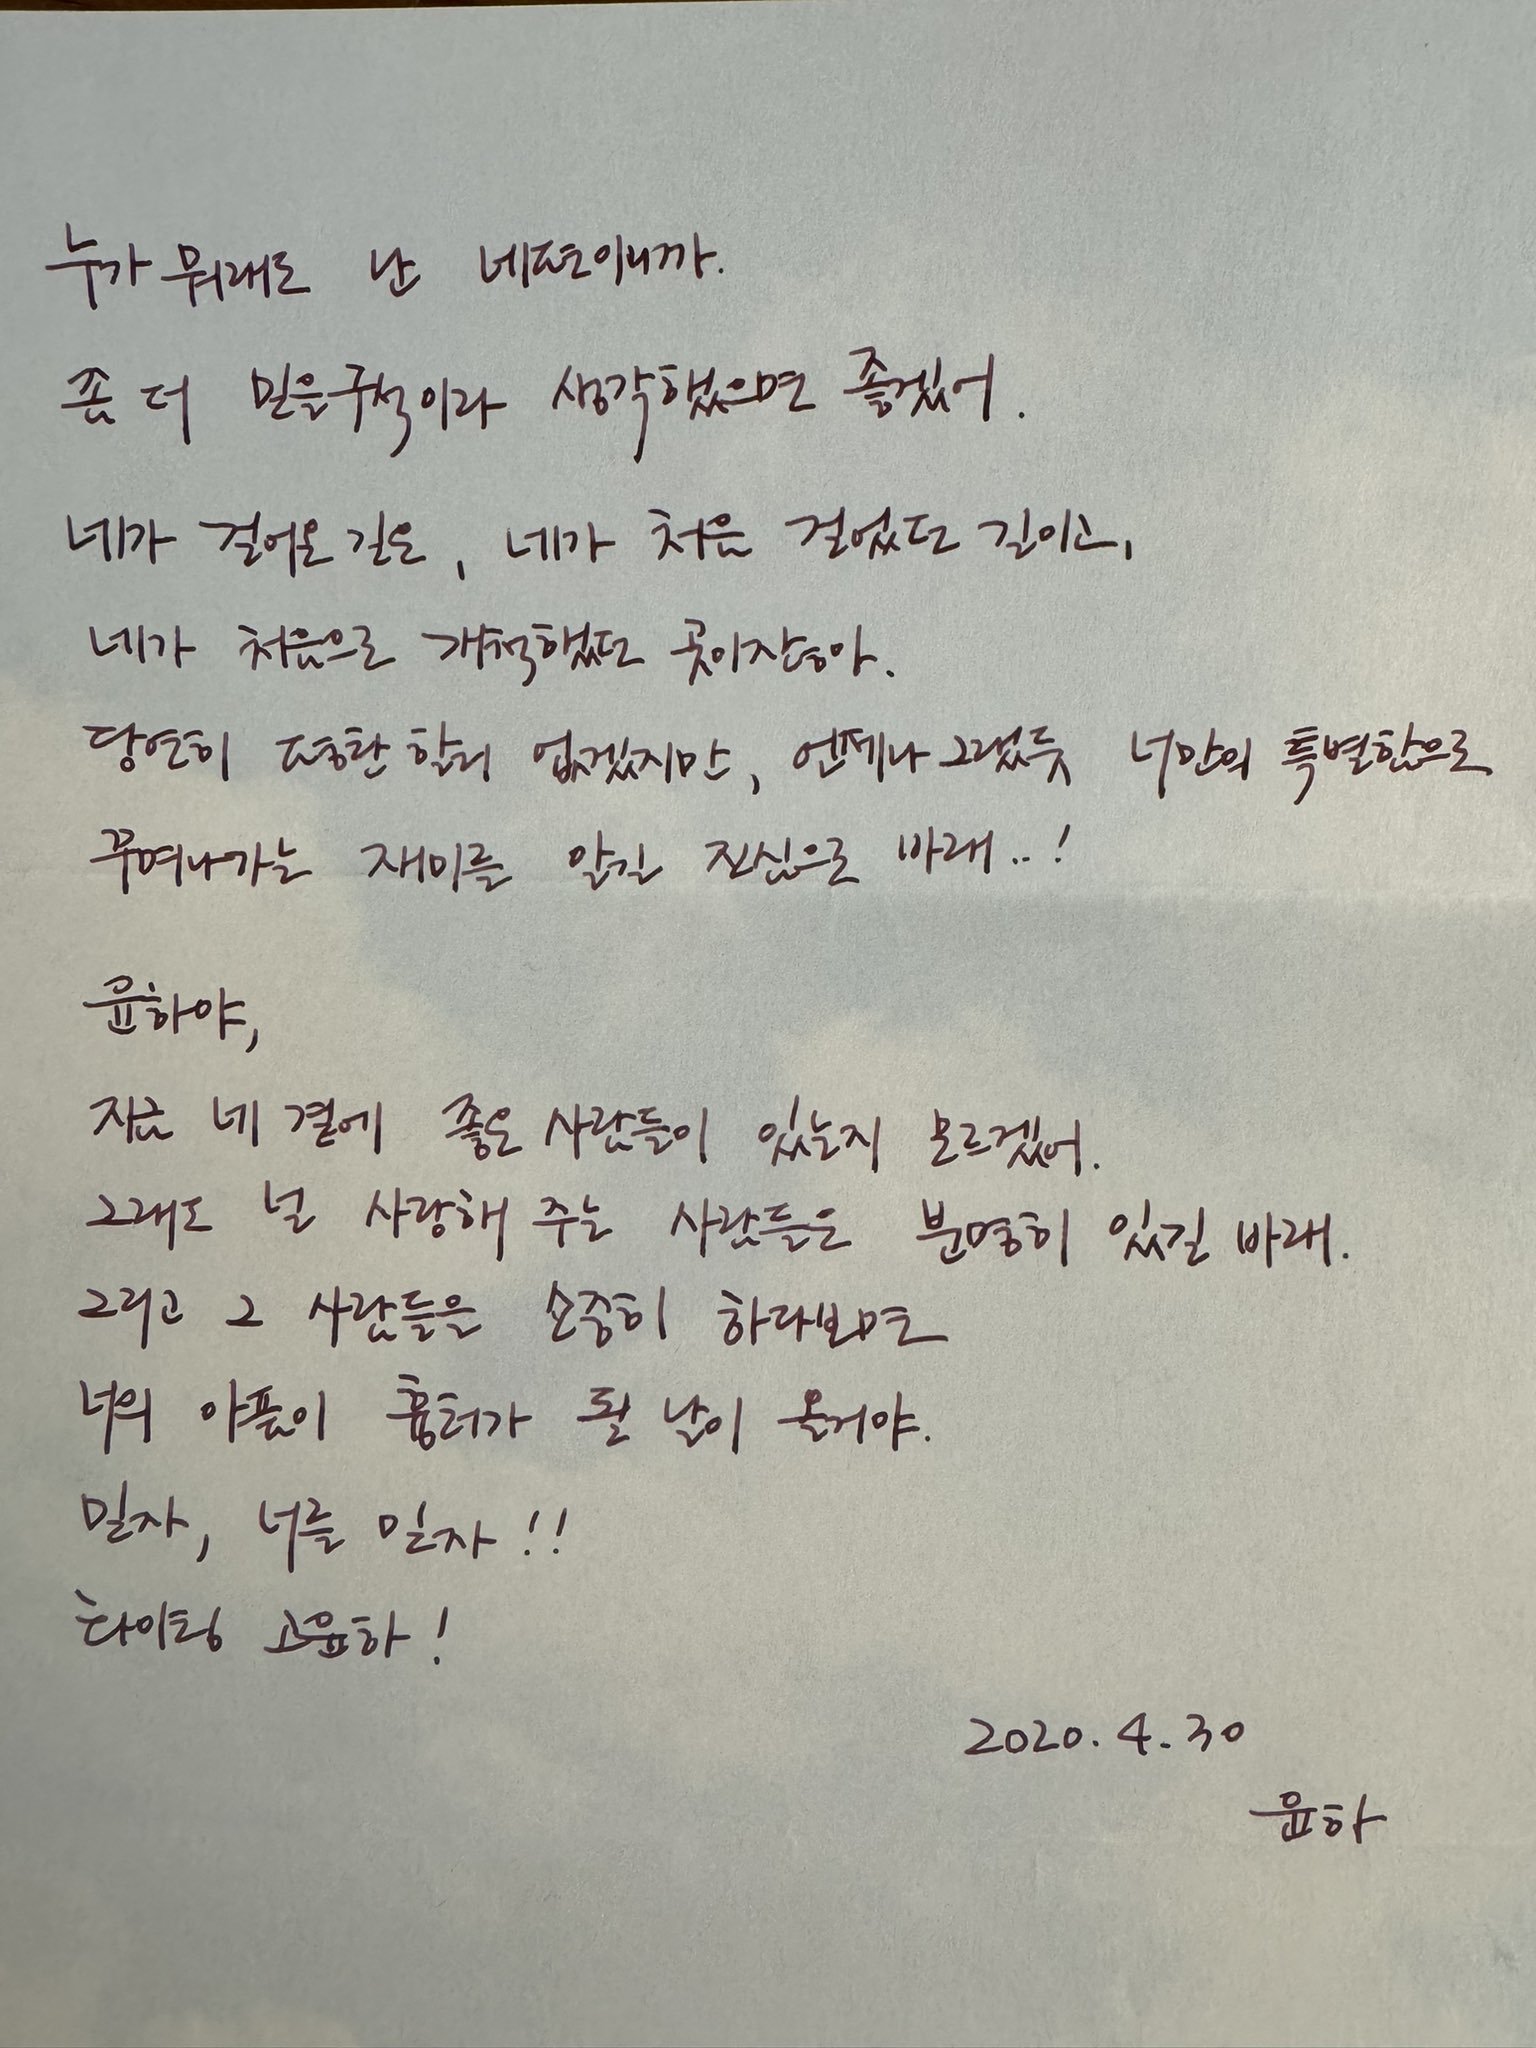 누가 뭐래도 난 네편이니까.
좀 더 믿을구석이라 생각했으면 좋겠어.
네가 걸어온 길은, 네가 처음 걸었던 길이고,
네가 처음으로 개척했던 곳이잖아.
당연히 평탄할리 없겠지만, 언제나 그랬듯 너만의 특별함으로
꾸며나가는 재미를 알길 진심으로 바래..!
윤하야,
지금 네 곁에 좋은 사람들이 있는지 모르겠어.
그래도 널 사랑해 주는 사람들은 분명히 있길 바래.
그리고 그 사람들을 소중히 하다보면
너의 아픔이 흉터가 될 날이 올거야.
믿자, 너를 믿자!!
화이팅 고윤하!
2020.4.30
윤하